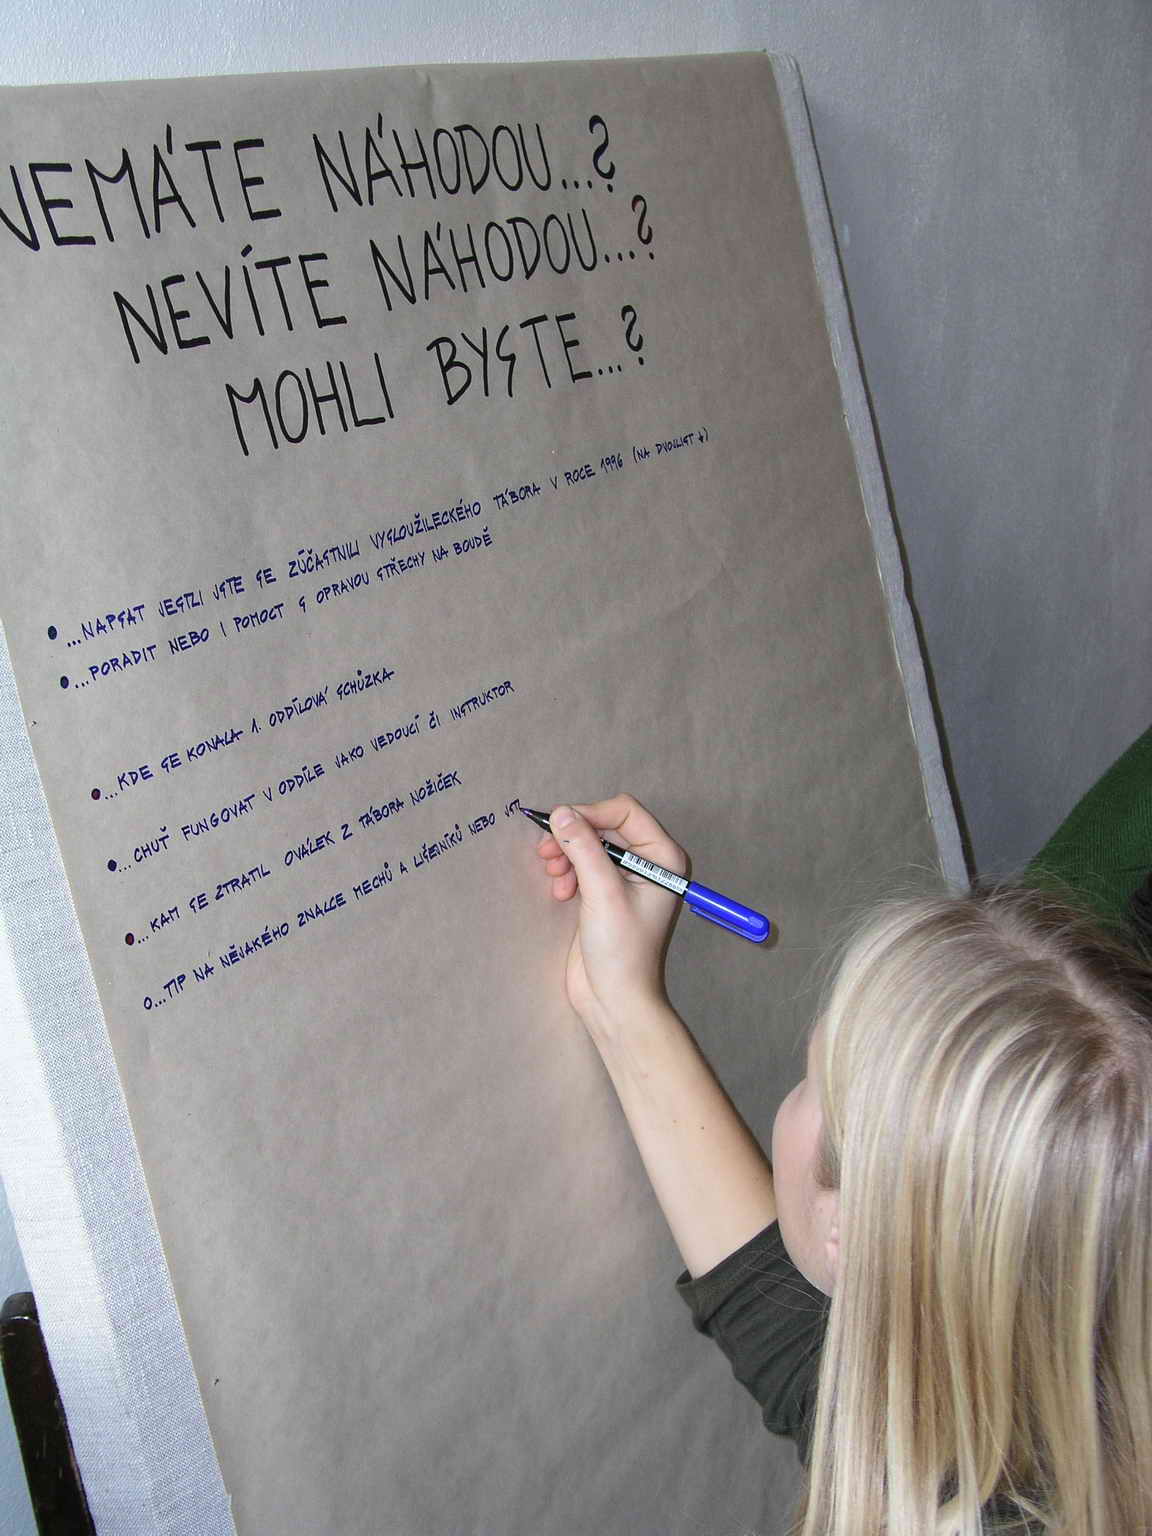 NEMÁTE NÁHODOU...?
NEVÍTE NÁHODOU...?
MOHLI BYSTE...?
● ...NAPSAT JESTLI JSTE SE ZÚČASTNILI VYSLOUŽILECKÉHO TÁBORA V ROCE 1996 (NA DVOJLIST ↓)
● ...PORADIT NEBO I POMOCT S OPRAVOU STŘECHY NA BOUDĚ
● ...KDE SE KONALA 1. ODDÍLOVÁ SCHŮZKA
● ...CHUŤ FUNGOVAT V ODDÍLE JAKO VEDOUCÍ ČI INSTRUKTOR
● ...KAM SE ZTRATIL OVÁLEK Z TÁBORA NOŽIČEK
O...TIP NA NĚJAKÉHO ZNALCE MECHŮ A LIŠEJNÍKŮ NEBO